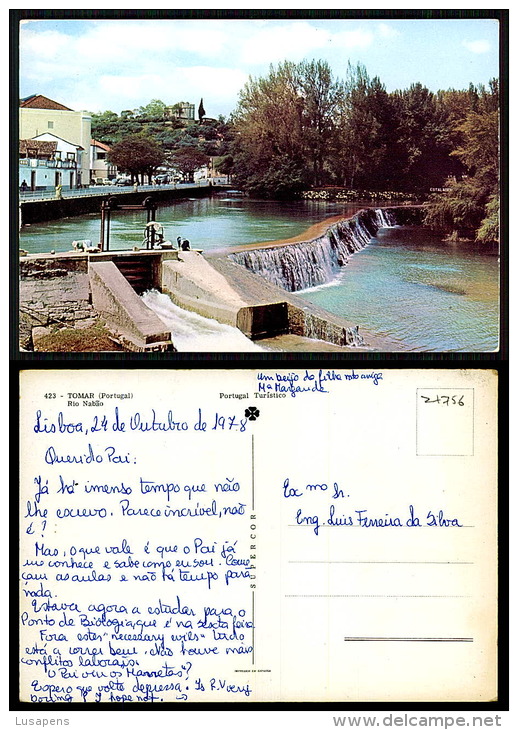 423 - TOMAR (Portugal)
Rio Nabão
Portugal Turístico
um beijo da filha mto amiga
Mª Margarida
21756
Lisboa, 24 de Outubro de 1978
Querido Pai:
Já há imenso tempo que não
lhe escrevo. Parece incrível, não
é?
Mas, o que vale é que o Pai já
me conhece e sabe como eu sou. Come-
çam as aulas e não há tempo para
nada.
Estava agora a estudar para o
Ponto de Biologia, que é na sexta feira.
Fora estes "necessary evils" tudo
está a correr bem. Não houve mais
conflitos laborais.
O Pai viu os Marretas?
Espero que volte depressa. Is R. very
boring? I hope not.
SUPERCOR
Ex mo Sr.
Eng. Luis Ferreira da Silva
Lusapens
www.delcampe.net